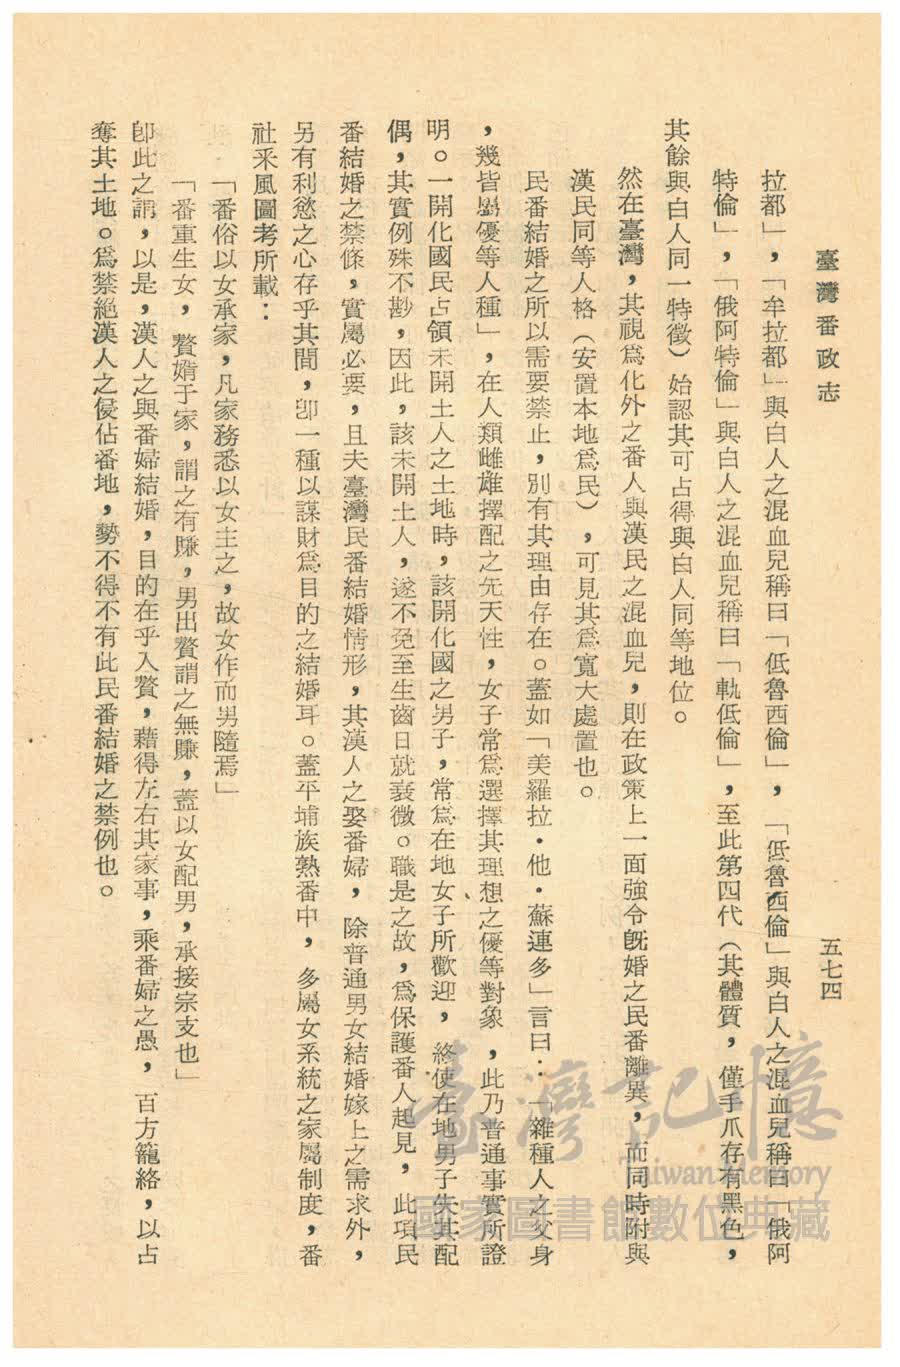 臺灣番政志
五七四
拉都」，「牟拉都」與白人之混血兒稱曰「低魯西倫」，「低魯西倫」與白人之混血兒稱曰「俄阿
特倫」，「俄阿特倫」與白人之混血兒稱曰「軌低倫」，至此第四代（其體質，僅手爪存有黑色，
其餘與白人同一特徵）始認其可占得與白人同等地位。
然在臺灣，其視爲化外之番人與漢民之混血兒，則在政策上一面強令旣婚之民番離異，而同時附與
漢民同等人格（安置本地爲民），可見其爲寬大處置也。
民番結婚之所以需要禁止，別有其理由存在。蓋如「美羅拉・他・蘇連多」言曰：「雜種人之父身
，幾皆屬優等人種」，在人類雌雄擇配之先天性，女子常爲選擇其理想之優等對象，此乃普通事實所證
明。一開化國民占領未開土人之土地時，該開化國之男子，常爲在地女子所歡迎，終使在地男子失其配
偶，其實例殊不尠，因此，該未開土人，遂不免至生齒日就衰微。職是之故，爲保護番人起見，此項民
番結婚之禁條，實屬必要，且夫臺灣民番結婚情形，其漢人之娶番婦，除普通男女結婚嫁上之需求外，
另有利慾之心存乎其間，卽一種以謀財爲目的之結婚耳。蓋平埔族熟番中，多屬女系統之家屬制度，番
社采風圖考所載：
「番俗以女承家，凡家務悉以女主之，故女作而男隨焉」
「番重生女，贅婿于家，謂之有賺，男出贅謂之無賺，蓋以女配男，承接宗支也」
卽此之謂，以是，漢人之與番婦結婚，目的在乎入贅，藉得左右其家事，乘番婦之愚，百方籠絡，以占
奪其土地。爲禁絕漢人之侵佔番地，勢不得不有此民番結婚之禁例也。
臺灣記憶
Taiwan Memory
國家圖書館數位典藏